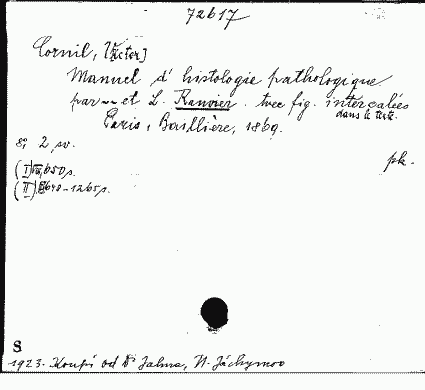 72617
Cornil, V[ictor]
Manuel d' histologie pathologique
par — et L. Ranvier. Avec fig. intercalées
dans le texte.
Paris, Baillière, 1869.
8; 2 sv.
pk.
(I) VII, 650 s.
(II), 648-1265 s.
S
1923. Koupí od Dr Jahna, N. Jáchymov